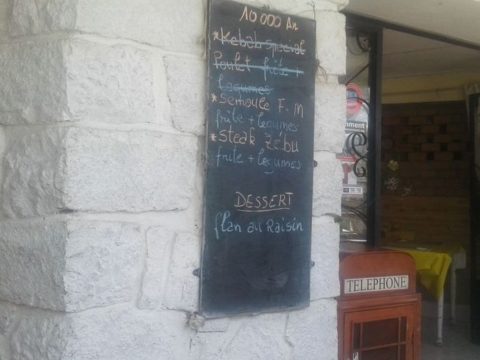 10 000 Ar
*Kebab special
Poulet frite +
Legumes
*semoule F.M
frite + legumes
*steak zébu
frite + legumes
DESSERT
flan au Raisin
TELEPHONE